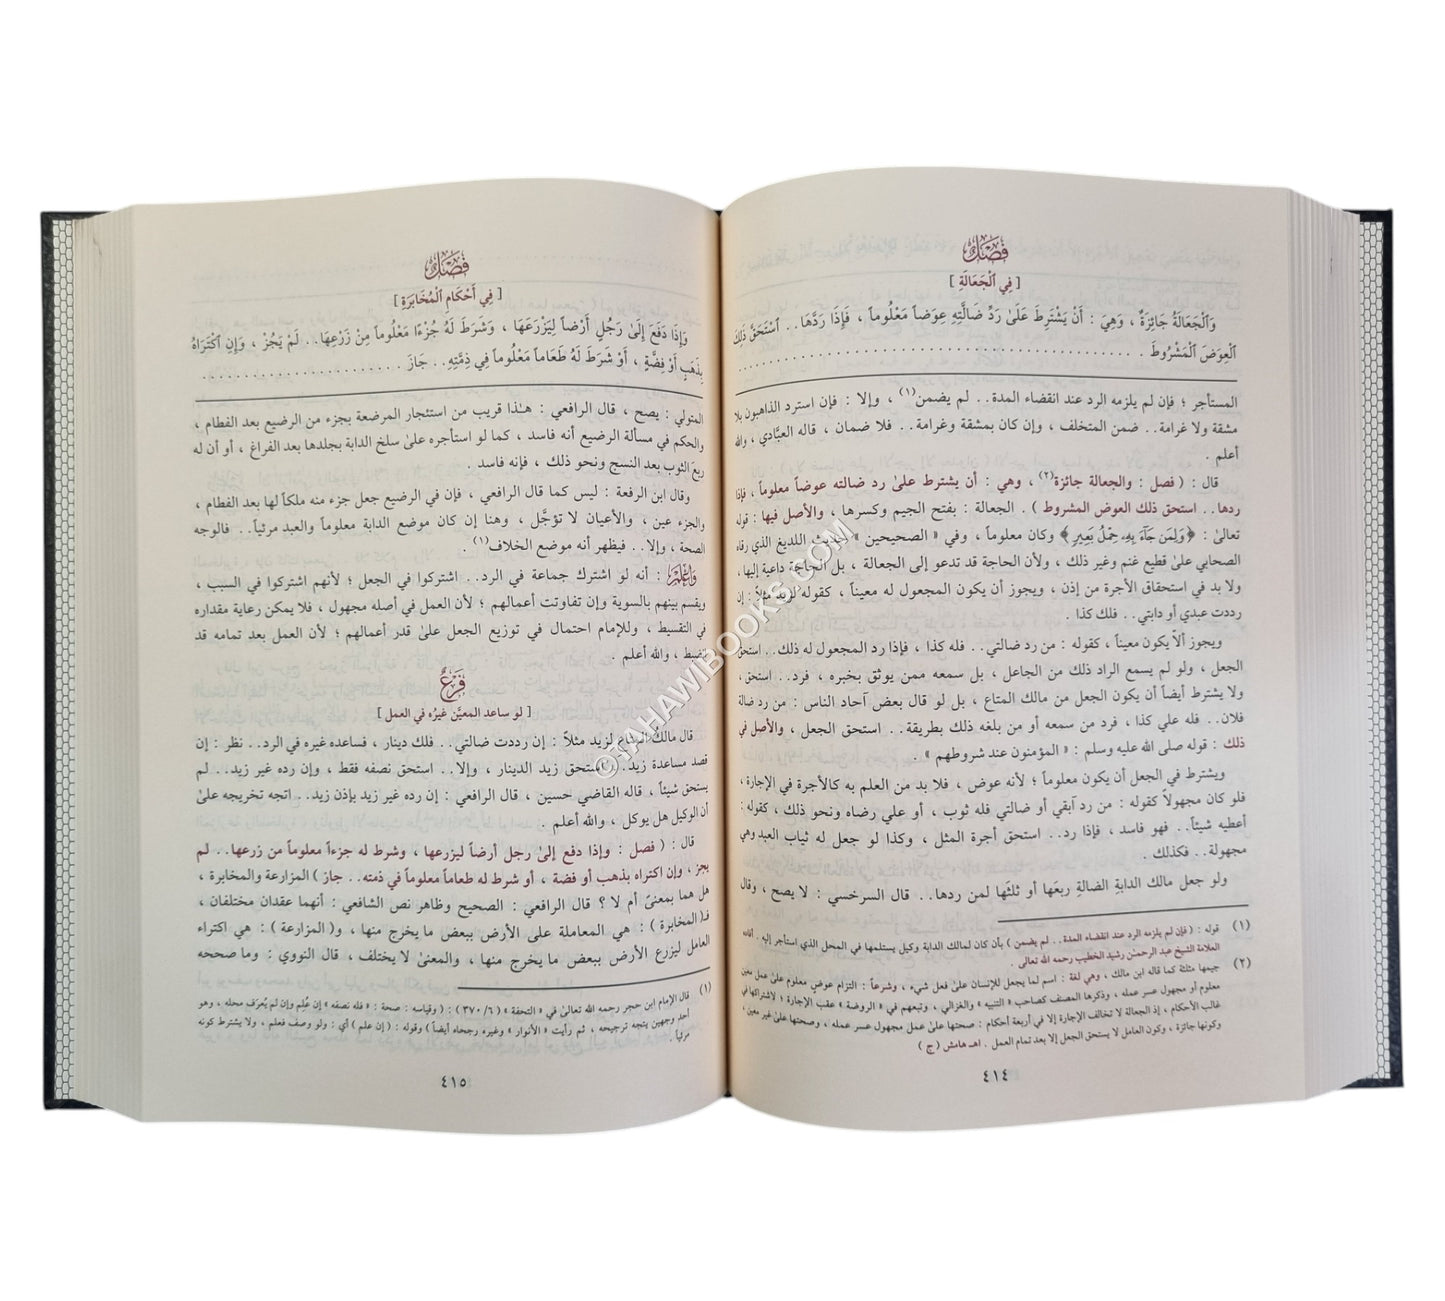 فصل
[ في الجعالة ]
وَالْجَعَالَةُ جَائِزَةٌ ، وَهِيَ : أَنْ يَشْتَرِطَ عَلَىٰ رَدِّ ضَالَّتِهِ عِوَضاً مَعْلُوماً ، فَإِذَا رَدَّهَا.. اسْتَحَقَّ ذٰلِكَ
الْعِوَضَ الْمَشْرُوطَ .
المستأجر ؛ فإن لم يلزمه الرد عند انقضاء المدة.. لم يضمن(١) ، وإلا : فإن استرد الذاهبون بلا
مشقة ولا غرامة.. ضمن المتخلف ، وإن كان بمشقة وغرامة.. فلا ضمان ، قاله العبَّادي ، والله
أعلم .
قال : ( فصل : والجعالة جائزة(٢) ، وهي : أن يشترط علىٰ رد ضالته عوضاً معلوماً ، فإذا
ردها.. استحق ذلك العوض المشروط ) . الجعالة : بفتح الجيم وكسرها ، والأصل فيها : قوله
تعالىٰ : ﴿وَلِمَن جَآءَ بِهِۦ حِمْلُ بَعِيرٍ﴾ وكان معلوماً ، وفي « الصحيحين » حديث اللديغ الذي رقاه
الصحابي علىٰ قطيع غنم وغير ذلك ، ولأن الحاجة قد تدعو إلى الجعالة ، بل الحاجة داعية إليها،
ولا بد في استحقاق الأجرة من إذن ، ويجوز أن يكون المجعول له معيناً ، كقوله لزيد مثلاً : إن
رددت عبدي أو دابتي.. فلك كذا .
ويجوز ألاَّ يكون معيناً ، كقوله : من رد ضالتي.. فله كذا ، فإذا رد المجعول له ذلك.. استحق
الجعل ، ولو لم يسمع الراد ذلك من الجاعل ، بل سمعه ممن يوثق بخبره ، فرد.. استحق ،
ولا يشترط أيضاً أن يكون الجعل من مالك المتاع ، بل لو قال بعض آحاد الناس : من رد ضالة
فلان.. فله علي كذا ، فرد من سمعه أو من بلغه ذلك بطريقة.. استحق الجعل ، والأصل في
ذلك : قوله صلى الله عليه وسلم : « المؤمنون عند شروطهم » .
ويشترط في الجعل أن يكون معلوماً ؛ لأنه عوض ، فلا بد من العلم به كالأجرة في الإجارة ،
فلو كان مجهولاً كقوله : من رد آبقي أو ضالتي فله ثوب ، أو علي رضاه ونحو ذلك ، كقوله :
أعطيه شيئاً.. فهو فاسد ، فإذا رد.. استحق أجرة المثل ، وكذا لو جعل له ثياب العبد وهي
مجهولة.. فكذلك .
ولو جعل مالك الدابةِ الضالةِ ربعَها أو ثلثَها لمن ردها.. قال السرخسي : لا يصح ، وقال
(١) قوله : ( فإن لم يلزمه الرد عند انقضاء المدة.. لم يضمن ) بأن كان لمالك الدابة وكيل يستلمها في المحل الذي استأجر إليه . أفاده
العلامة الشيخ عبد الرحمٰن رشيد الخطيب رحمه الله تعالىٰ .
(٢) جيمها مثلثة كما قاله ابن مالك ، وهي لغة : اسم لما يجعل للإنسان علىٰ فعل شيء ، وشرعاً : التزام عوض معلوم علىٰ عمل معين
معلوم أو مجهول عسر عمله ، وذكرها المصنف كصاحب « التنبيه » والغزالي ، وتبعهم في « الروضة » عقب الإجارة ؛ لاشتراكها في
غالب الأحكام ، إذ الجعالة لا تخالف الإجارة إلا في أربعة أحكام : صحتها علىٰ عمل مجهول عسر عمله ، وصحتها علىٰ غير معين ،
وكونها جائزة ، وكون العامل لا يستحق الجعل إلا بعد تمام العمل . اهـ هامش ( ج )
٤١٤
فصل
[ في أحكام المُخَابَرَةِ ]
وَإِذَا دَفَعَ إِلَىٰ رَجُلٍ أَرْضاً لِيَزْرَعَهَا ، وَشَرَطَ لَهُ جُزْءًا مَعْلُوماً مِنْ زَرْعِهَا.. لَمْ يَجُزْ ، وَإِنِ اكْتَرَاهُ
بِذَهَبٍ أَوْ فِضَّةٍ ، أَوْ شَرَطَ لَهُ طَعَاماً مَعْلُوماً فِي ذِمَّتِهِ.. جَازَ .
المتولي : يصح ، قال الرافعي : هٰذا قريب من استئجار المرضعة بجزء من الرضيع بعد الفطام ،
والحكم في مسألة الرضيع أنه فاسد ، كما لو استأجره علىٰ سلخ الدابة بجلدها بعد الفراغ ، أو أن له
ربعَ الثوب بعد النسج ونحو ذلك ، فإنه فاسد .
وقال ابن الرفعة : ليس كما قال الرافعي ، فإن في الرضيع جعل جزء منه ملكاً لها بعد الفطام ،
والجزء عين ، والأعيان لا تؤجَّل ، وهنا إن كان موضع الدابة معلوماً والعبد مرئياً.. فالوجه
الصحة ، وإلا.. فيظهر أنه موضع الخلاف(١) .
واعلم : أنه لو اشترك جماعة في الرد.. اشتركوا في الجعل ؛ لأنهم اشتركوا في السبب ،
ويقسم بينهم بالسوية وإن تفاوتت أعمالهم ؛ لأن العمل في أصله مجهول ، فلا يمكن رعاية مقداره
في التقسيط ، وللإمام احتمال في توزيع الجعل علىٰ قدر أعمالهم ؛ لأن العمل بعد تمامه قد
انضبط ، والله أعلم .
فرع
[ لو ساعد المعيَّن غيرُه في العمل ]
قال مالك المتاع لزيد مثلاً : إن رددت ضالتي.. فلك دينار ، فساعده غيره في الرد.. نظر : إن
قصد مساعدة زيد.. استحق زيد الدينار ، وإلا.. استحق نصفه فقط ، وإن رده غير زيد.. لم
يستحق شيئاً ، قاله القاضي حسين ، قال الرافعي : إن رده غير زيد بإذن زيد.. اتجه تخريجه علىٰ
أن الوكيل هل يوكل ، والله أعلم .
قال : ( فصل : وإذا دفع إلىٰ رجل أرضاً ليزرعها ، وشرط له جزءاً معلوماً من زرعها.. لم
يجز ، وإن اكتراه بذهب أو فضة ، أو شرط له طعاماً معلوماً في ذمته.. جاز ) المزارعة والمخابرة ،
هل هما بمعنىً أم لا ؟ قال الرافعي : الصحيح وظاهر نص الشافعي : أنهما عقدان مختلفان ،
فـ( المخابرة ) : هي المعاملة على الأرض ببعض ما يخرج منها ، و( المزارعة ) : هي اكتراء
العامل ليزرع الأرض ببعض ما يخرج منها ، والمعنىٰ لا يختلف ، قال النووي : وما صححه
(١) قال الإمام ابن حجر رحمه الله تعالىٰ في « التحفة » ( ٦/ ٣٧٠ ) : ( وقياسه : صحة : « فله نصفه » إن عُلِم وإن لم يُعرَف محله ، وهو
أحد وجهين يتجه ترجيحه ، ثم رأيت « الأنوار » وغيره رجحاه أيضاً ) وقوله : ( إن علم ) أي : ولو وصف فعلم ، ولا يشترط كونه
مرئياً .
٤١٥
©TAHAWIBOOKS.COM